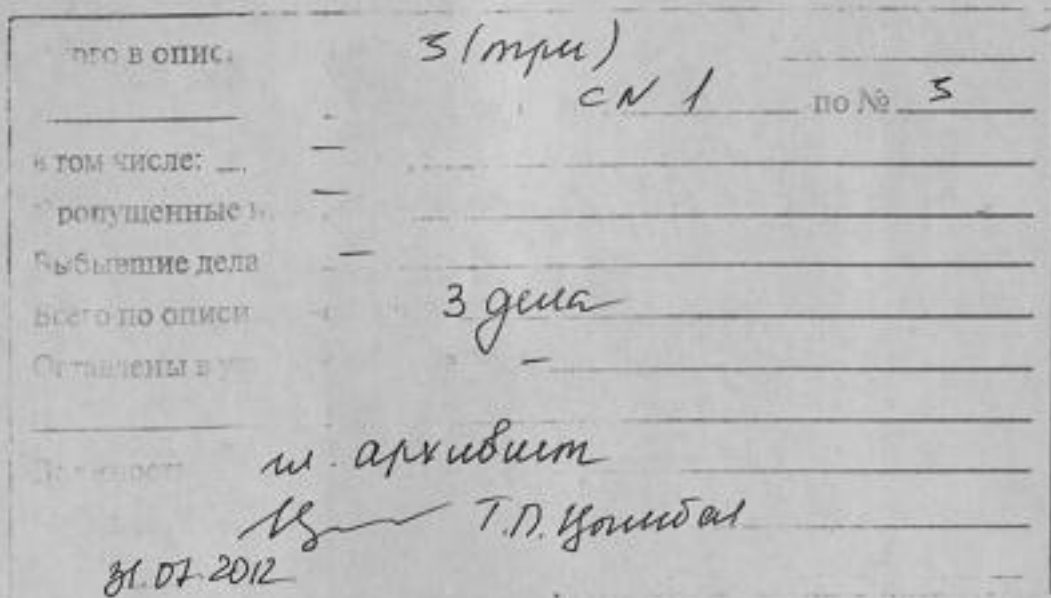 в опис
3 (три)
с № 1 по № 3
в том числе: —
Пропущенные —
Выбывшие дела —
Всего по описи 3 дела
Оставлены в —
гл. архивист
Т.П.
31.07.2012